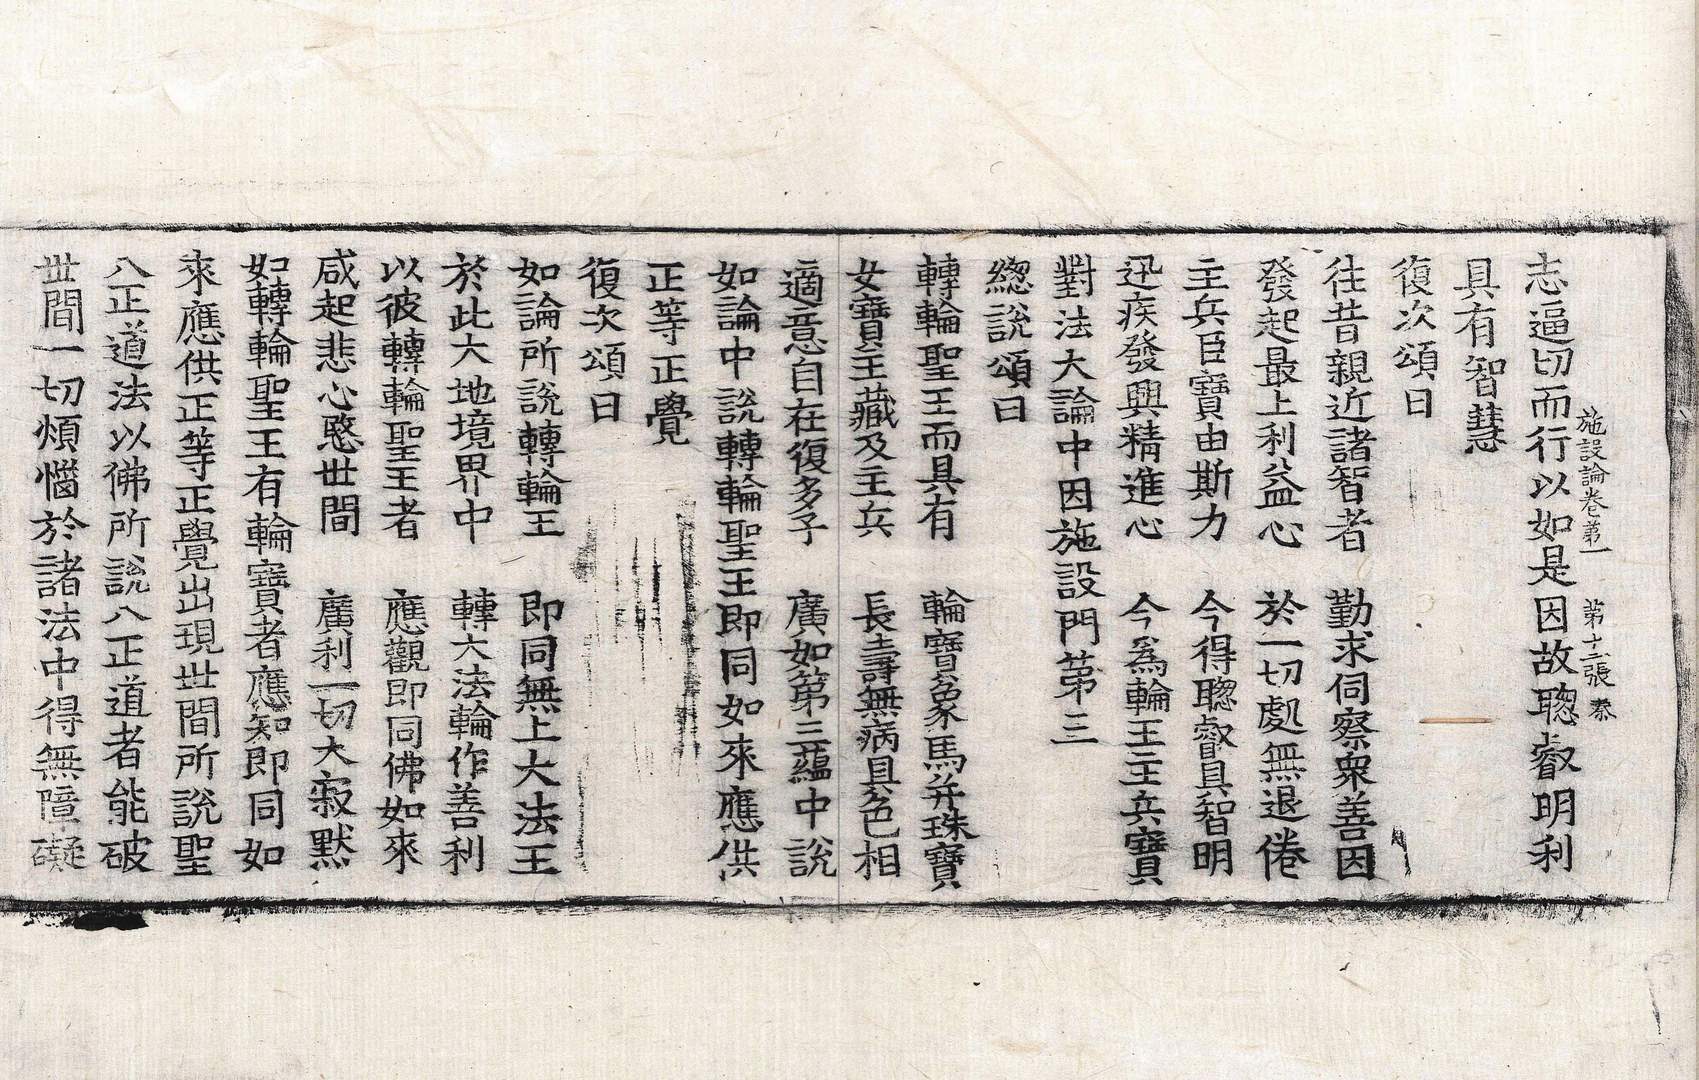 施設論卷第一 第十二張 恭
志逼切而行以如是因故聦叡明利
具有智慧
復次頌曰
往昔親近諸智者 勤求伺察衆善因
發起最上利益心 於一切處無退倦
主兵臣寶由斯力 今得聦叡具智明
迅疾發興精進心 今爲輪王主兵寶
對法大論中因施設門第三
緫說頌曰
轉輪聖王而具有 輪寶象馬并珠寶
女寶主藏及主兵 長壽無病具色相
適意自在復多子 廣如第三蘊中說
如論中說轉輪聖王即同如來應供
正等正覺
復次頌曰
如論所說轉輪王 即同無上大法王
於此大地境界中 轉大法輪作善利
以彼轉輪聖王者 應觀即同佛如來
咸起悲心愍世間 廣利一切大寂默
如轉輪聖王有輪寶者應知即同如
來應供正等正覺出現世間所說聖
八正道法以佛所說八正道者能破
世間一切煩惱於諸法中得無障礙